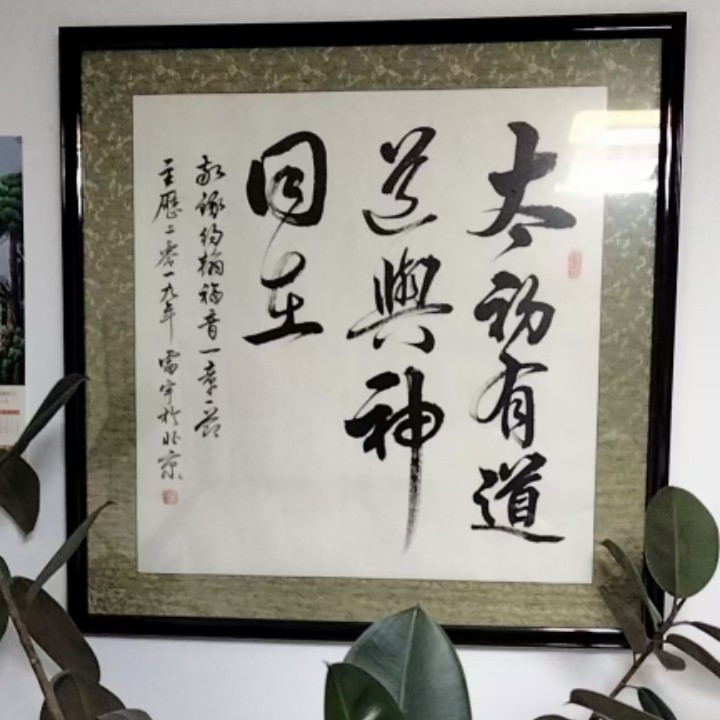 太初有道
道與神
同在
敬録約翰福音一章一節
主歷二零一九年 雷宇於北京